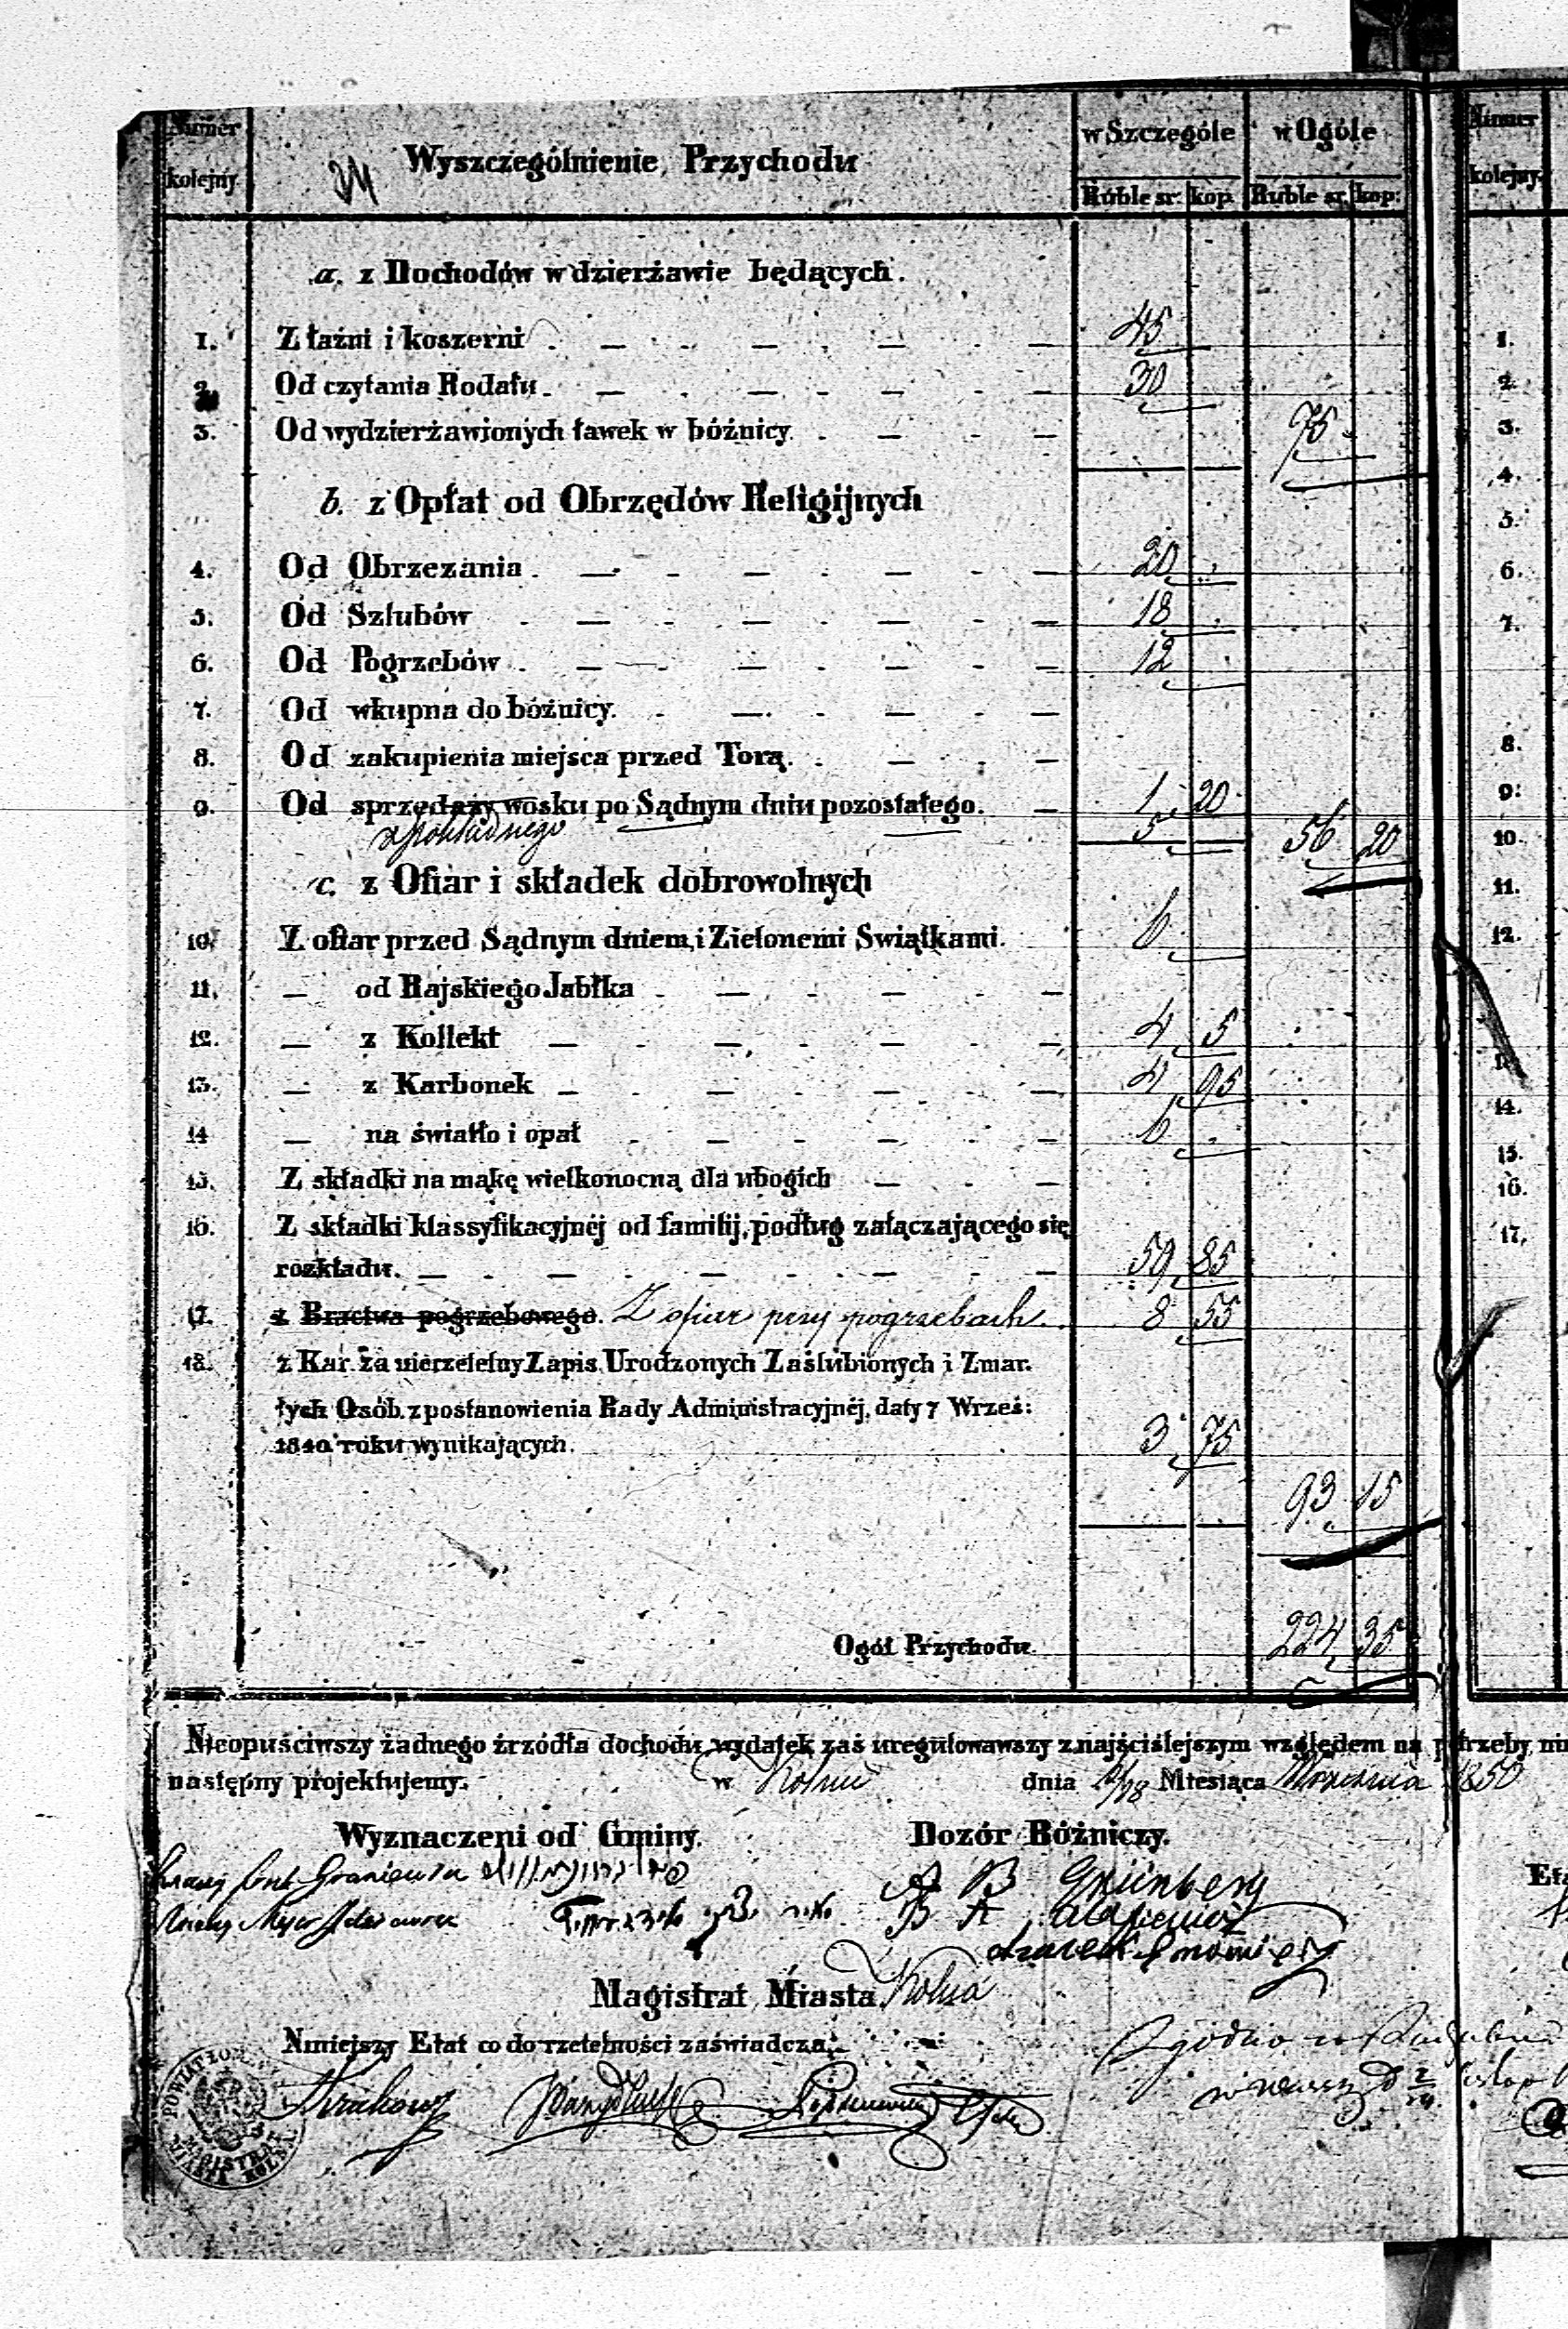 Numer kolejny Wyszczególnienie Przychodu w Szczególe w Ogóle Numer kolejny
Ruble sr. kop. Ruble sr. kop:
a. z Dochodów w dzierżawie będących.
1. Z łaźni i koszerni 45 1.
2. Od czytania Rodału 30 2.
3. Od wydzierżawionych ławek w bóżnicy. 75 3.
4.
b. z Opłat od Obrzędów Religijnych
5.
4. Od Obrzezania 20 6.
5. Od Szlubów 18 7.
6. Od Pogrzebów 12
7. Od wkupna do bóżnicy.
8. Od zakupienia miejsca przed Torą. 8.
9. Od sprzedaży wosku po Sądnym dniu pozostałego. 1 20 9.
z pokładnego 5 56 20 10.
c. z Ofiar i składek dobrowolnych 11.
10. Z ofiar przed Sądnym dniem i Zielonemi Swiątkami. 6 12.
11. — od Rajskiego Jabłka
12. — z Kollekt 4 5
13. — z Karbonek 4 95
14 — na światło i opał 6 14.
15. Z składki na mąkę wielkonocną dla ubogich 15.
16.
16. Z składki klassyfikacyjnéj od familij, podług załączającego się 17.
rozkładu. 59 85
17. z Bractwa pogrzebowego. Z ofiar przy pogrzebach 8 55
18. z Kar za nierzetelny Zapis Urodzonych Zaślubionych i Zmar-
łych Osób z postanowienia Rady Administracyjnéj, daty 7 Wrześ:
1840 roku wynikających. 3 75
93 15
Ogół Przychodu. 224 35
Nieopuściwszy żadnego źrzódła dochodu, wydatek zaś uregulowawszy z najściślejszym względem na potrzeby, ni
następny projektujemy. w Kolnie dnia Miesiąca Września 1850
Wyznaczeni od Gminy. Dozór Bóżniczy.
A B Grünberg
B A
Magistrat Miasta Kolna
Niniejszy Etat co do rzetelności zaświadcza.
POWIAT ŁOM. MAGISTRAT MIASTA KOLNA